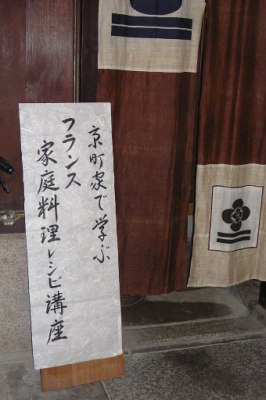 京町家で学ぶ
フランス
家庭料理レシピ講座